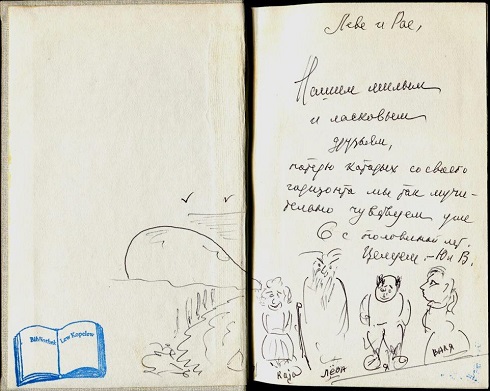 Лёве и Рае,
Нашим милым
и ласковым
друзьям,
потерю которых со своего
горизонта мы так мучи-
тельно чувствуем уже
6 с половиной лет.
Целуем – Ю и В.
Raja
ЛЁВА
Я
ВАЛЯ
Bibliothek Lew Kopelew